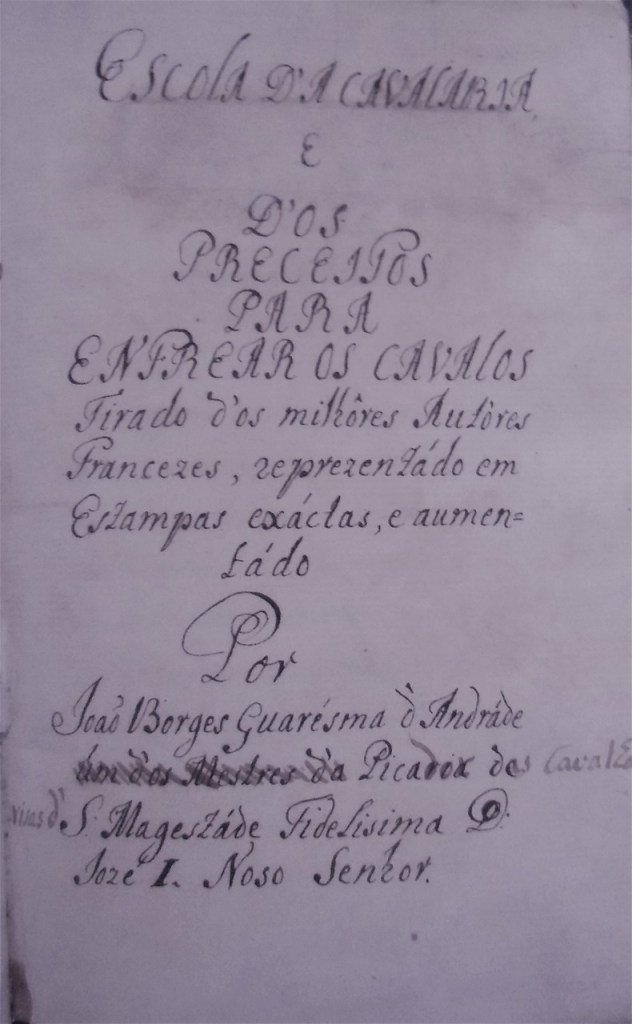 ESCOlA D'A CAVAlARIA,
E
D'OS
PRECEITOS
PARA
ENFREAR OS CAVAlOS
Tirado d'os milhôres Autôres
Francezes, reprezentádo em
Estampas exáctas, e aumen=
tádo
Por
João Borges Guarésma d'Andráde
úm d'os Mestres d'a Picaria de
S. Magestáde Fidelisima D.
Jozé I. Noso Senhor.